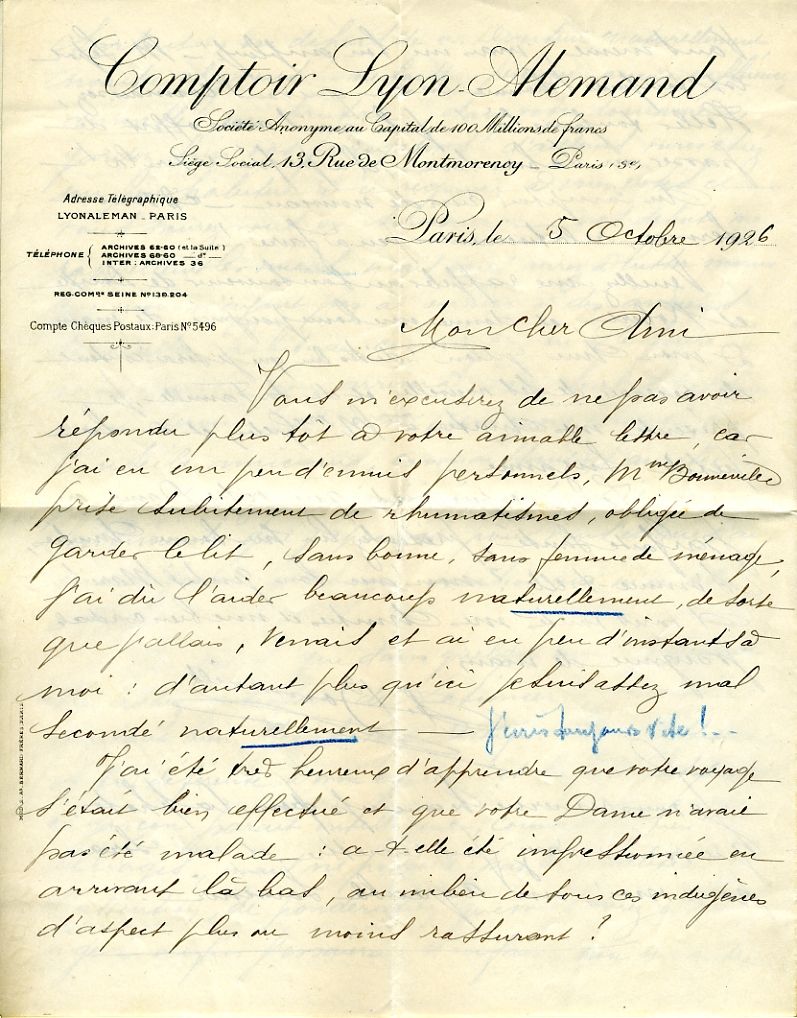 Comptoir Lyon-Alemand
Société Anonyme au Capital de 100 Millions de francs
Siège Social, 13, Rue de Montmorency _ Paris (3e)
Adresse Télégraphique
LYONALEMAN _ PARIS
TÉLÉPHONE { ARCHIVES 62-60 (et la Suite)
ARCHIVES 68-60 _ do _
INTER : ARCHIVES 36
REG. COMce SEINE No 139.204
Compte Chèques Postaux: Paris No 5496
Paris, le 5 Octobre 1926
Mon cher Ami
Vous m'excuserez de ne pas avoir
répondu plus tôt à votre aimable lettre, car
j'ai eu un peu d'ennuis personnels, Mme Bonneville
prise subitement de rhumatismes, obligée de
garder le lit, sans bonne, sans femme de ménage,
j'ai dû l'aider beaucoup naturellement, de sorte
que j'allais, venais et ai eu peu d'instants à
moi : d'autant plus qu'ici je suis assez mal
secondé naturellement — J'écris toujours vite !..
J'ai été très heureux d'apprendre que votre voyage
s'était bien effectué et que votre Dame n'avait
pas été malade : a-t-elle été impressionnée en
arrivant là bas, au milieu de tous ces indigènes
d'aspect plus ou moins rassurant ?
BERNARD FRÈRES PARIS